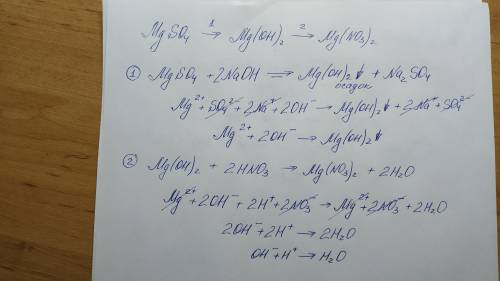 MgSO₄ →¹ Mg(OH)₂ →² Mg(NO₃)₂
① MgSO₄ + 2NaOH ⟹ Mg(OH)₂↓ + Na₂SO₄
осадок
Mg²⁺ + SO₄²⁻ + 2Na⁺ + 2OH⁻ → Mg(OH)₂↓ + 2Na⁺ + SO₄²⁻
Mg²⁺ + 2OH⁻ → Mg(OH)₂↓
② Mg(OH)₂ + 2HNO₃ → Mg(NO₃)₂ + 2H₂O
Mg²⁺ + 2OH⁻ + 2H⁺ + 2NO₃⁻ → Mg²⁺ + 2NO₃⁻ + 2H₂O
2OH⁻ + 2H⁺ → 2H₂O
OH⁻ + H⁺ → H₂O